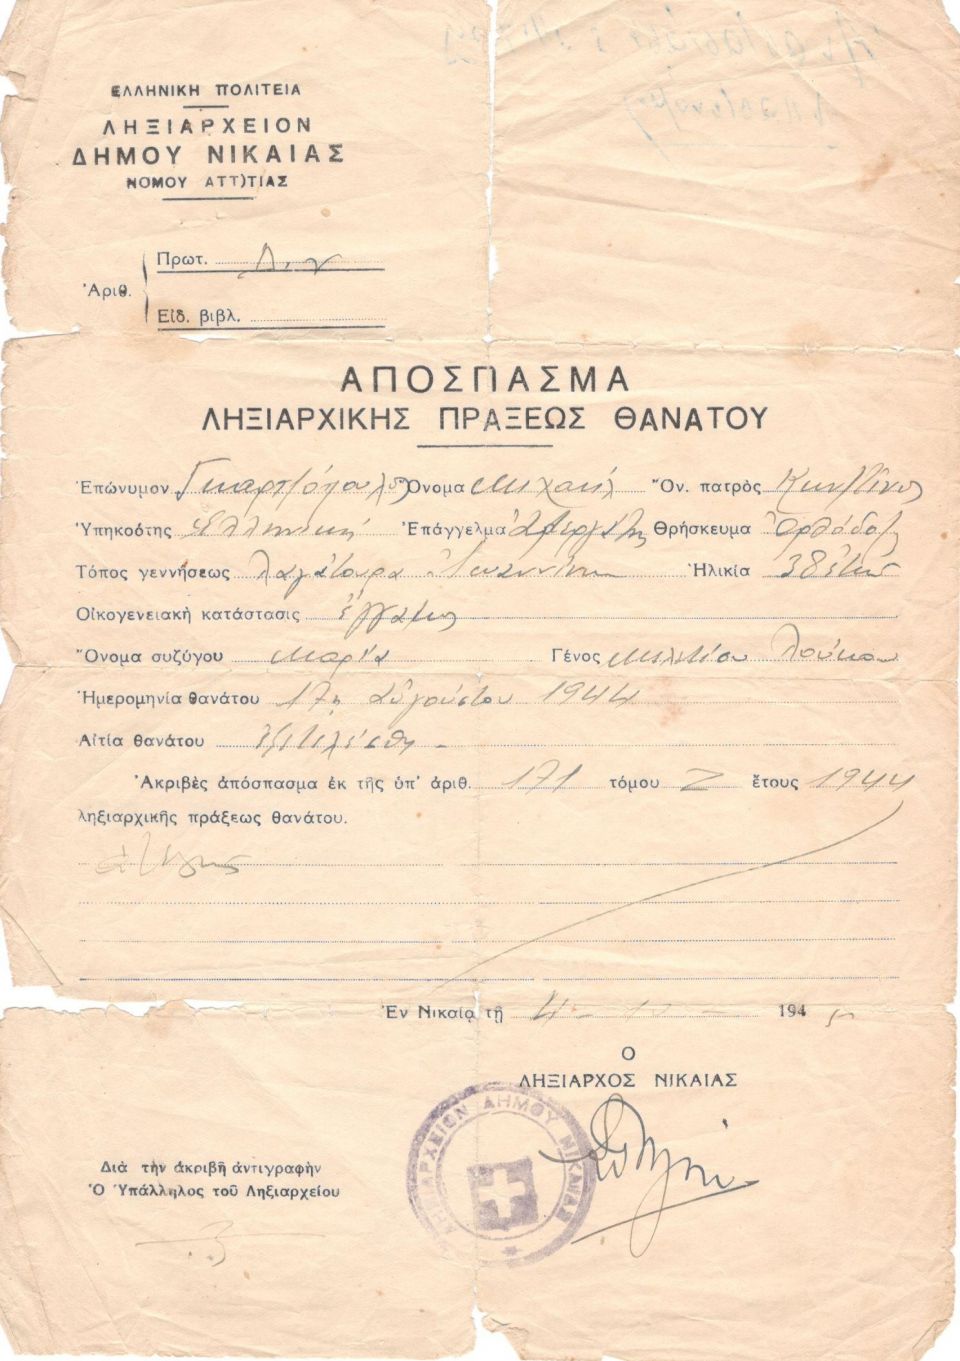 ΕΛΛΗΝΙΚΗ ΠΟΛΙΤΕΙΑ
ΛΗΞΙΑΡΧΕΙΟΝ
ΔΗΜΟΥ ΝΙΚΑΙΑΣ
ΝΟΜΟΥ ΑΤΤ)ΤΙΑΣ
Ἀριθ.
Πρωτ.
Εἰδ. βιβλ.
ΑΠΟΣΠΑΣΜΑ
ΛΗΞΙΑΡΧΙΚΗΣ ΠΡΑΞΕΩΣ ΘΑΝΑΤΟΥ
Ἐπώνυμον Ὄνομα Μιχαήλ Ὄν. πατρὸς Κων/τίνος
Ὑπηκοότης Ἑλληνική Ἐπάγγελμα Θρήσκευμα Ὀρθόδοξ
Τόπος γεννήσεως Ἡλικία 38 ἐτῶν
Οἰκογενειακὴ κατάστασις ἔγγαμος
Ὄνομα συζύγου Μαρία Γένος Μελετίου Λούκου
Ἡμερομηνία θανάτου 17η Αὐγούστου 1944
Αἰτία θανάτου ἐξετελέσθη -
Ἀκριβὲς ἀπόσπασμα ἐκ τῆς ὑπ' ἀριθ. 171 τόμου Ζ ἔτους 1944
ληξιαρχικῆς πράξεως θανάτου.
Ἐν Νικαίᾳ τῇ 4 - 10 - 1945
Ο
ΛΗΞΙΑΡΧΟΣ ΝΙΚΑΙΑΣ
ΛΗΞΙΑΡΧΕΙΟΝ ΔΗΜΟΥ ΝΙΚΑΙΑΣ
Διὰ τὴν ἀκριβῆ ἀντιγραφὴν
Ὁ Ὑπάλληλος τοῦ Ληξιαρχείου